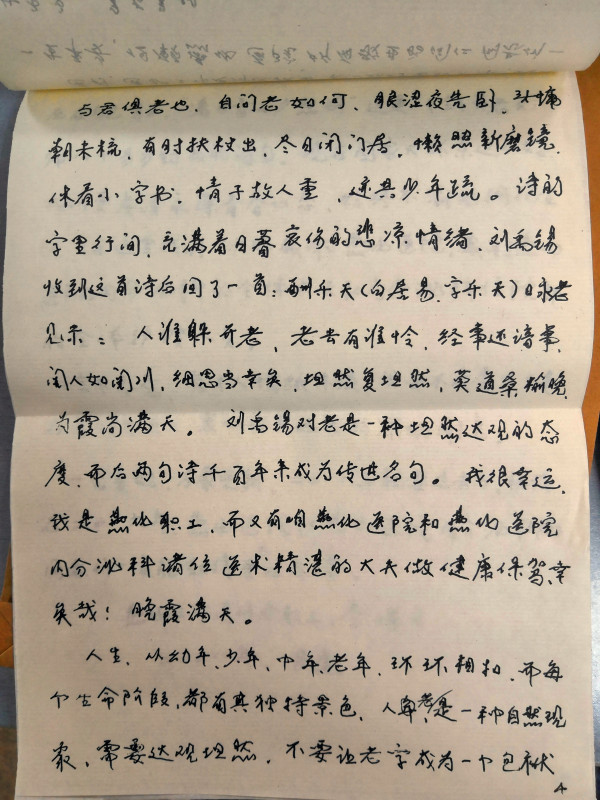 与君俱老也，自问老如何，眼涩夜先卧，头慵
朝未梳，有时扶杖出，冬日闭门居，懒照新磨镜，
休看小字书，情于故人重，迹共少年疏。诗的
字里行间，充满着日暮哀伤的悲凉情绪，刘禹锡
收到这首诗后回了一首：酬乐天（白居易，字乐天）咏老
见示：人谁躲开老，老去有谁怜，经事还谙事，
阅人如阅川，细思当幸矣，坦然复坦然，莫道桑榆晚，
为霞尚满天。刘禹锡对老是一种坦然达观的态
度，而后两句诗千百年来成为传世名句。我很幸运，
我是燕化职工，而又有咱燕化医院和燕化医院
内分泌科诸位医术精湛的大夫做健康保驾，幸
矣哉！晚霞满天。
人生，从幼年、少年、中年、老年，环环相扣，而每
个生命阶段，都有其独特景色，人老是一种自然现
象，需要达观坦然，不要让老字成为一个包袱
4